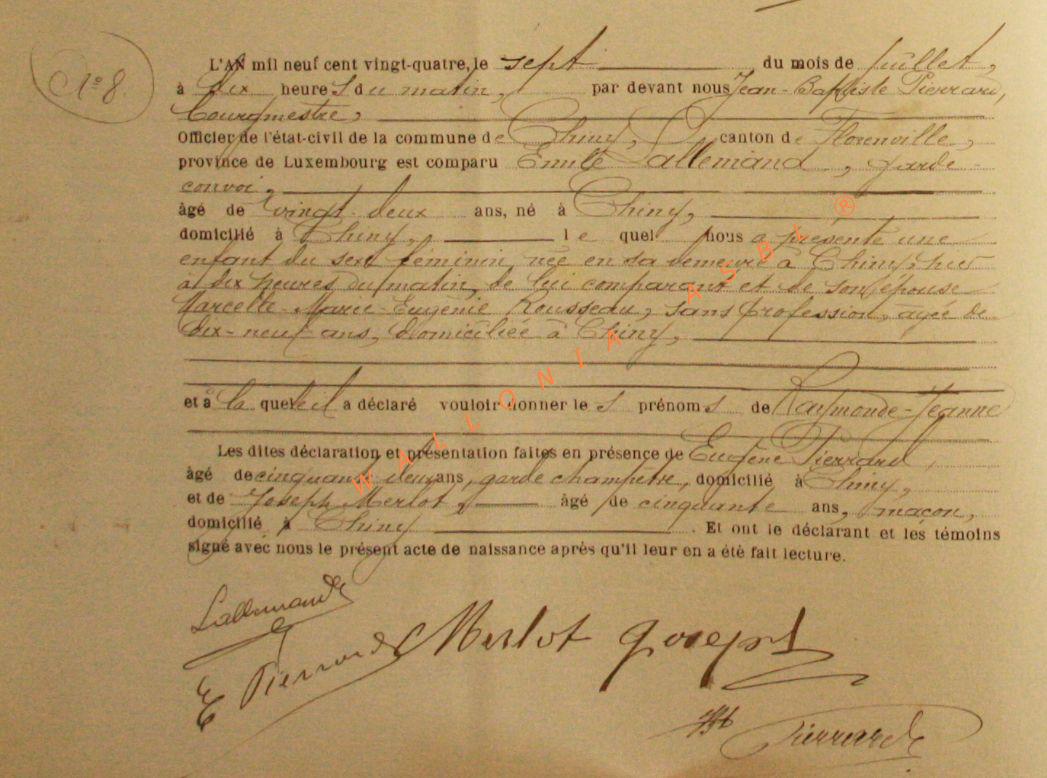 N° 8.
L'AN mil neuf cent vingt-quatre, le sept du mois de juillet,
à dix heures du matin, par devant nous Jean-Baptiste Pierrard,
bourgmestre,
Officier de l'état-civil de la commune de Chiny, canton de Florenville,
province de Luxembourg est comparu Emile Lallemand, garde
convoi,
âgé de vingt-deux ans, né à Chiny,
domicilié à Chiny, lequel nous a présenté une
enfant du sexe féminin, née en sa demeure à Chiny, hier
à dix heures du matin, de lui comparant et de son épouse
Marcelle-Marie-Eugénie Rousseau, sans profession, agée de
dix-neuf ans, domiciliée à Chiny,
et à la quelle il a déclaré vouloir donner les prénoms de Raymonde-Jeanne
Les dites déclaration et présentation faites en présence de Eugène Pierrard,
âgé de cinquante deux ans, garde champêtre, domicilié à Chiny,
et de Joseph Merlot, âgé de cinquante ans, maçon,
domicilié à Chiny. Et ont le déclarant et les témoins
signé avec nous le présent acte de naissance après qu'il leur en a été fait lecture.
Lallemand
E Pierrard Merlot Joseph
JBt Pierrard
WALLONIA ASBL ®